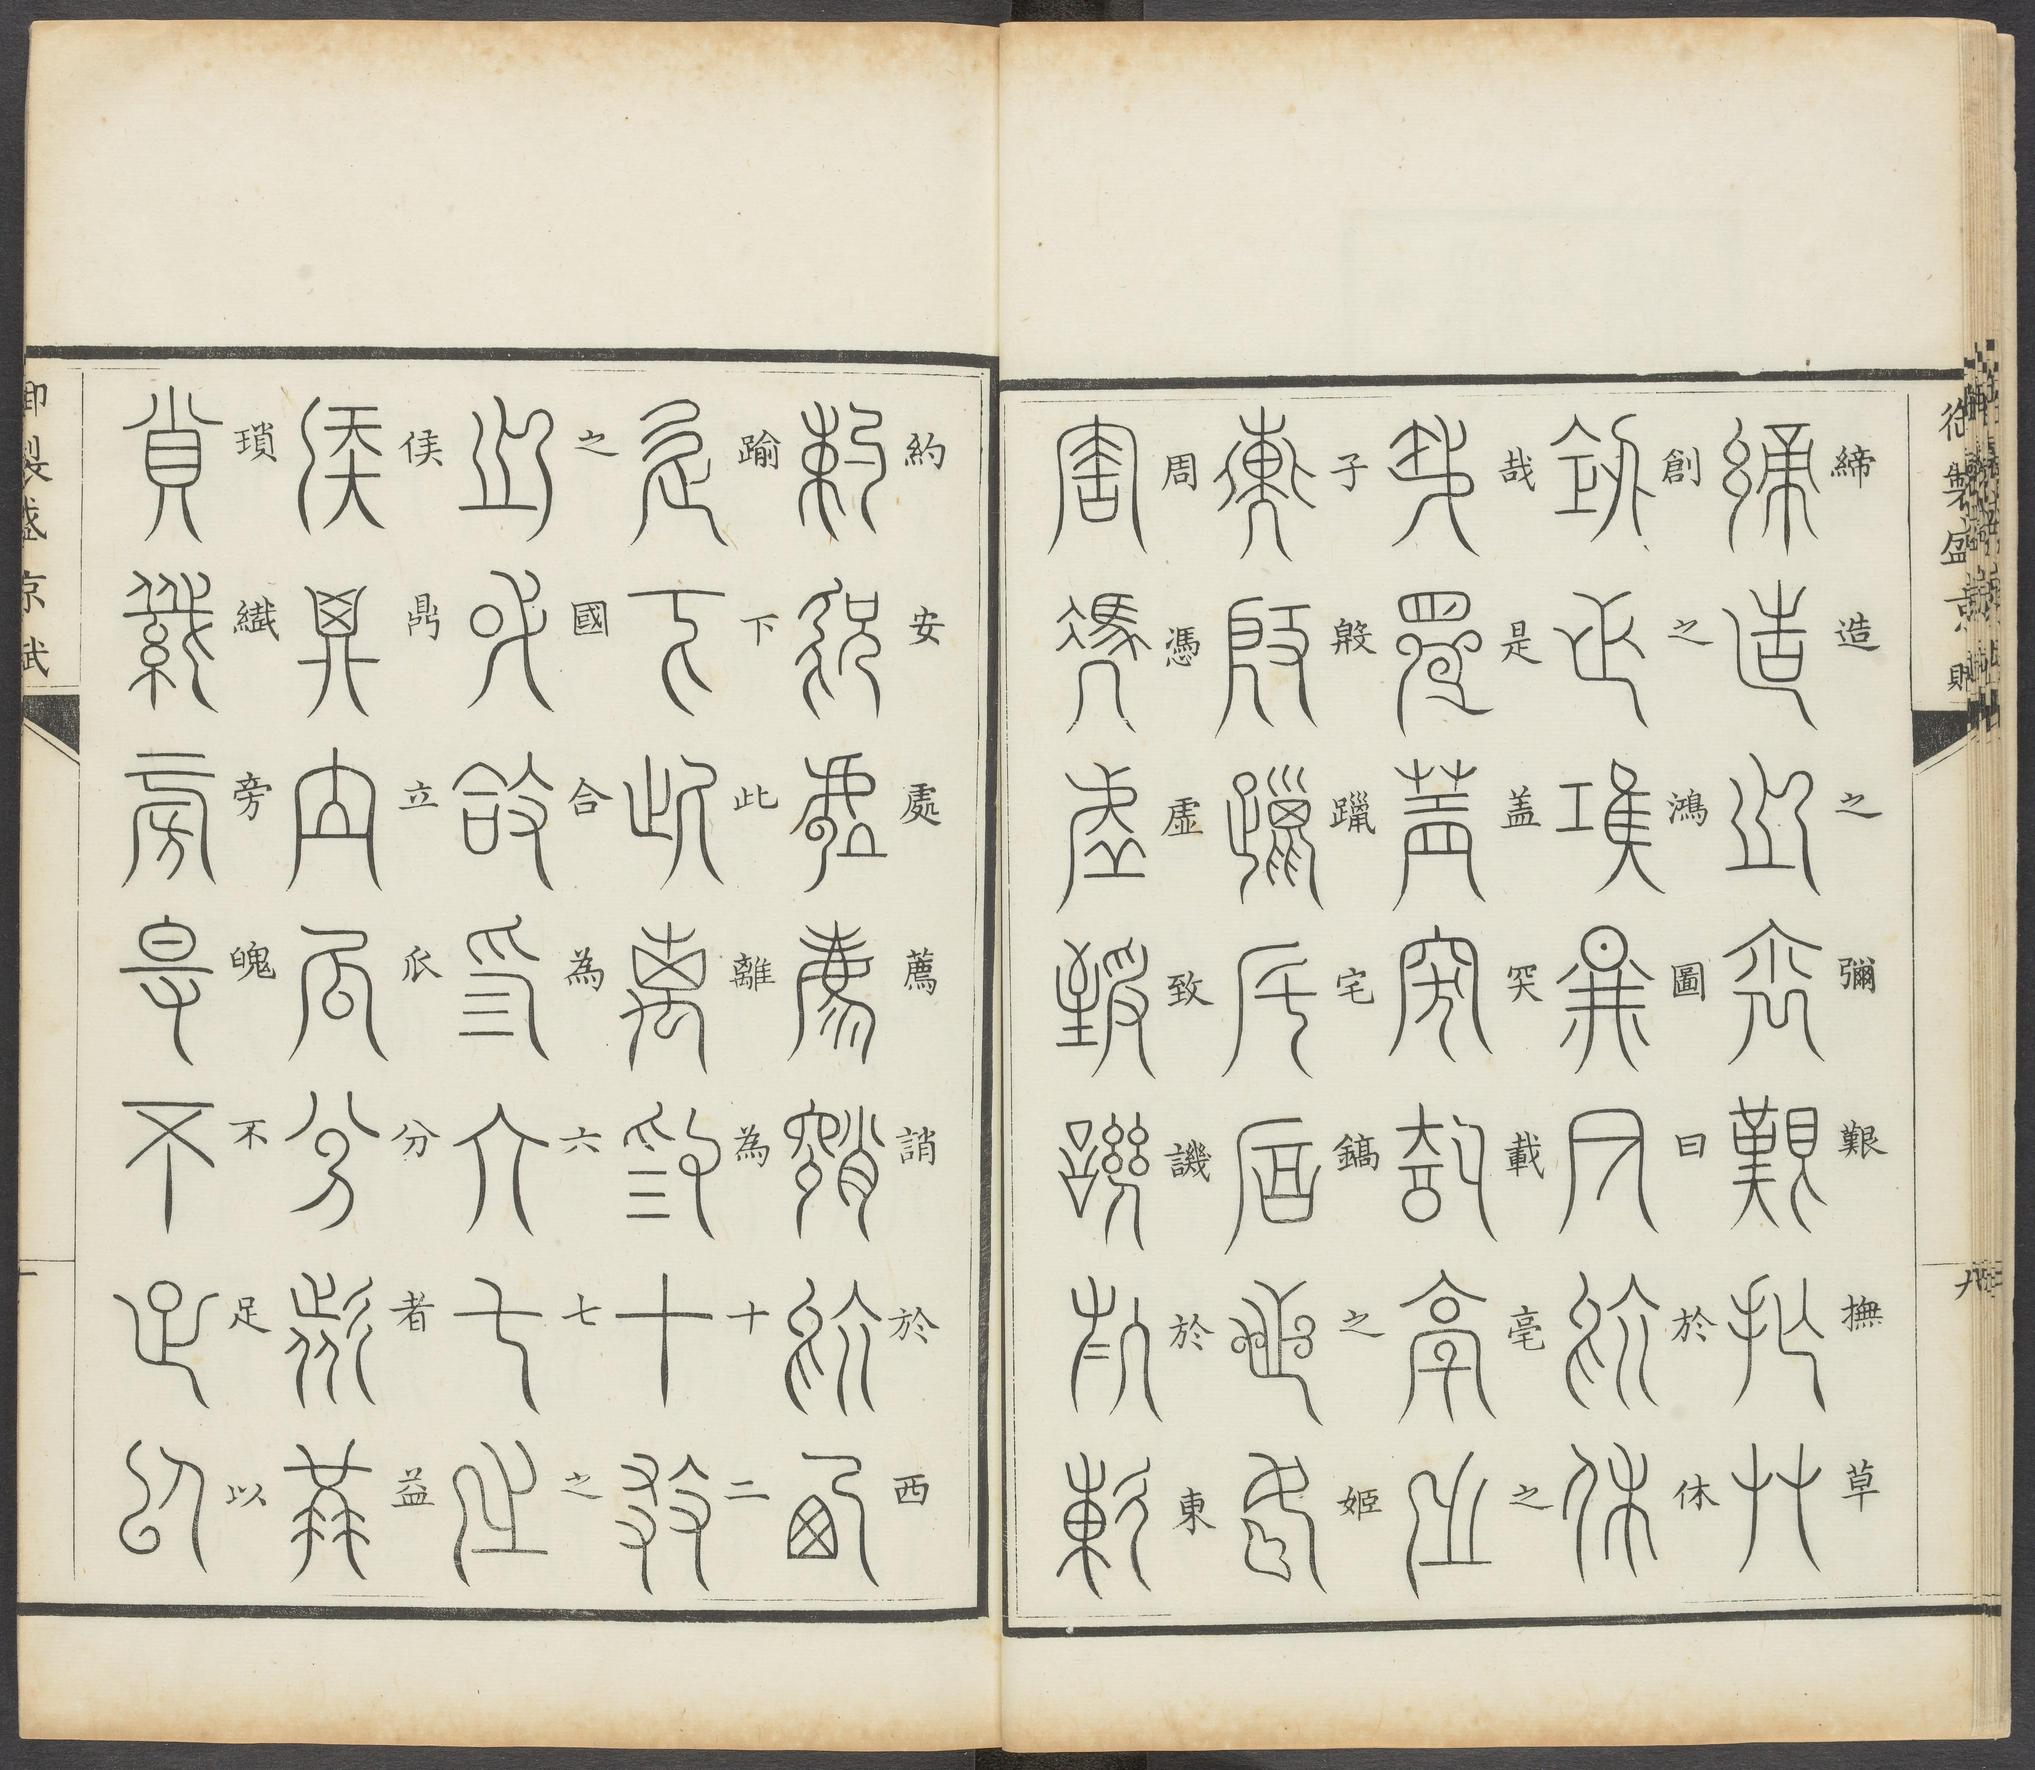 締造之彌艱撫草
創之鴻圖曰於休
哉是盖突載亳之
子殷躐宅鎬之姬
周憑虛致譏於東
約安處薦誚於西
踰下此離為十二
之國合為六七之
侯鼎立瓜分者益
瑣纖旁魄不足以
御製盛京賦